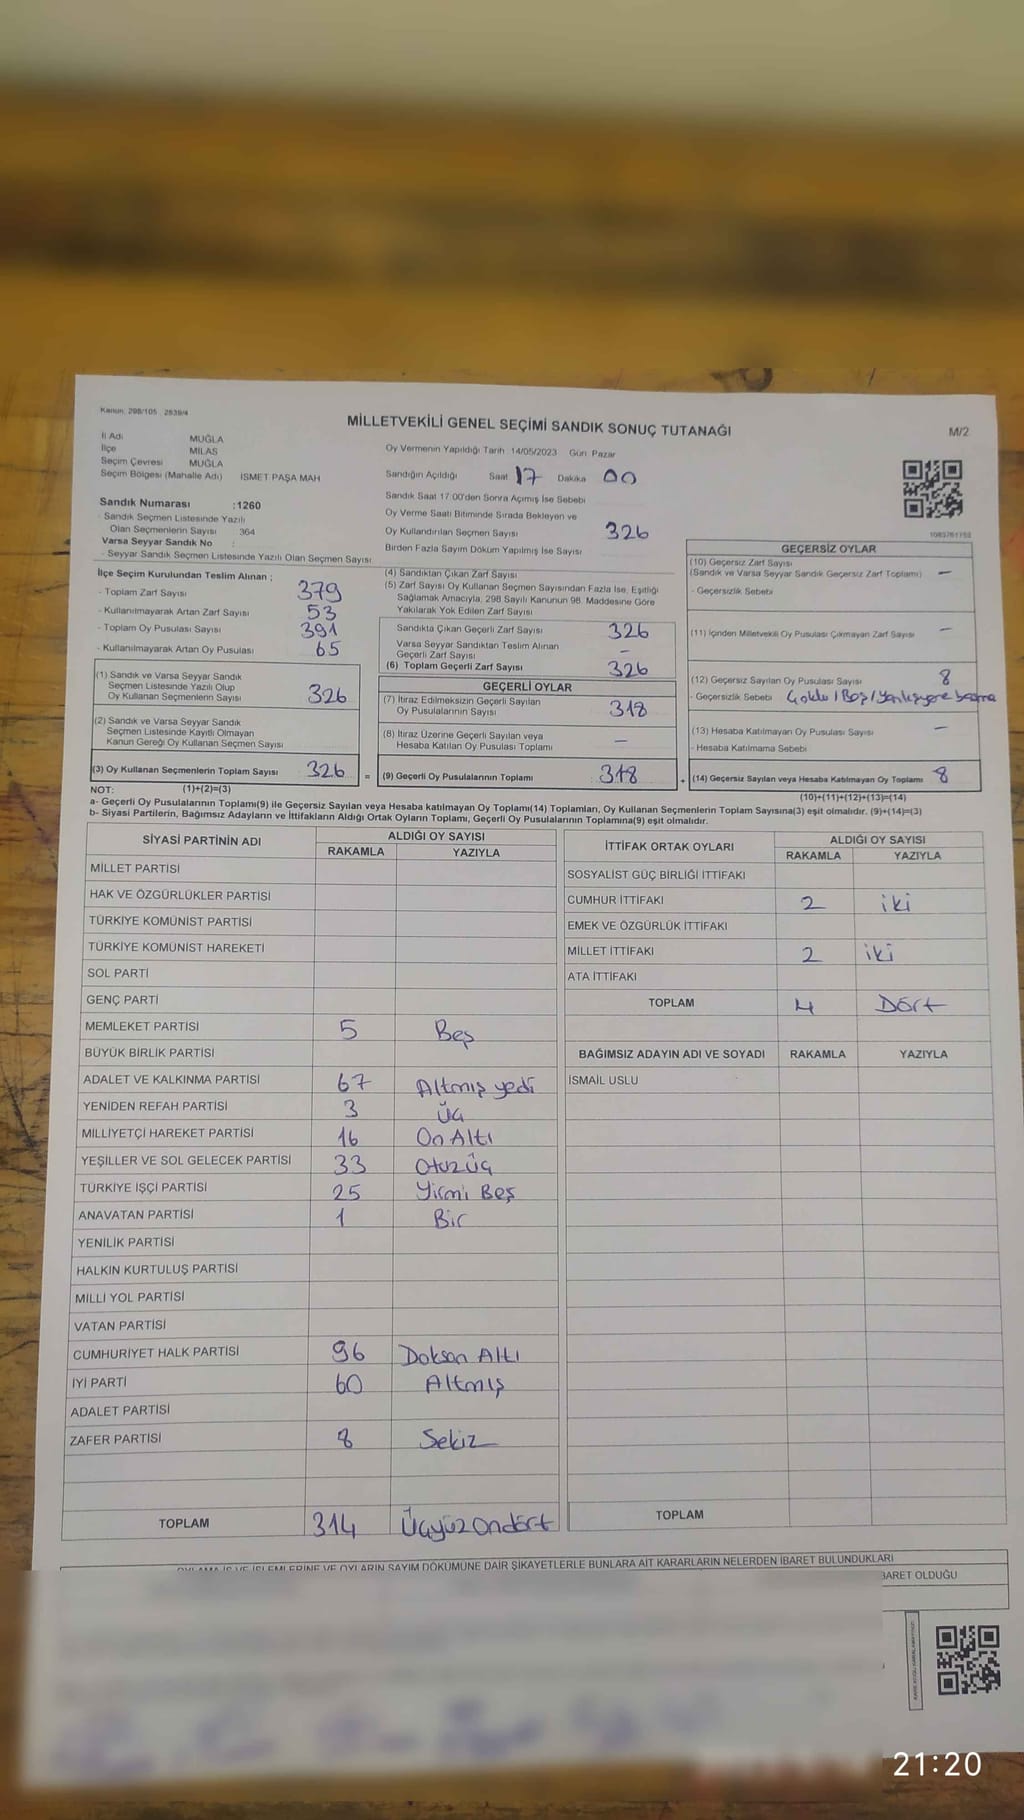 Kanun: 298/105 2839/4
MİLLETVEKİLİ GENEL SEÇİMİ SANDIK SONUÇ TUTANAĞI
M/2
İl Adı MUĞLA
İlçe MİLAS
Seçim Çevresi MUĞLA
Seçim Bölgesi (Mahalle Adı) İSMET PAŞA MAH
Oy Vermenin Yapıldığı Tarih 14/05/2023 Gün Pazar
Sandığın Açıldığı Saat 17 Dakika 00
Sandık Saat 17:00'den Sonra Açımış İse Sebebi
Oy Verme Saati Bitiminde Sırada Bekleyen ve
Oy Kullandırılan Seçmen Sayısı 326
Birden Fazla Sayım Döküm Yapılmış İse Sayısı
Sandık Numarası :1260
- Sandık Seçmen Listesinde Yazılı
Olan Seçmenlerin Sayısı 364
Varsa Seyyar Sandık No :
- Seyyar Sandık Seçmen Listesinde Yazılı Olan Seçmen Sayısı
İlçe Seçim Kurulundan Teslim Alınan ;
- Toplam Zarf Sayısı 379
- Kullanılmayarak Artan Zarf Sayısı 53
- Toplam Oy Pusulası Sayısı 391
- Kullanılmayarak Artan Oy Pusulası 65
(1) Sandık ve Varsa Seyyar Sandık
Seçmen Listesinde Yazılı Olup
Oy Kullanan Seçmenlerin Sayısı 326
(2) Sandık ve Varsa Seyyar Sandık
Seçmen Listesinde Kayıtlı Olmayan
Kanun Gereği Oy Kullanan Seçmen Sayısı
(3) Oy Kullanan Seçmenlerin Toplam Sayısı 326 =
(1)+(2)=(3)
(4) Sandıktan Çıkan Zarf Sayısı
(5) Zarf Sayısı Oy Kullanan Seçmen Sayısından Fazla İse, Eşitliği
Sağlamak Amacıyla, 298 Sayılı Kanunun 98. Maddesine Göre
Yakılarak Yok Edilen Zarf Sayısı
Sandıkta Çıkan Geçerli Zarf Sayısı 326
Varsa Seyyar Sandıktan Teslim Alınan
Geçerli Zarf Sayısı –
(6) Toplam Geçerli Zarf Sayısı 326
GEÇERLİ OYLAR
(7) İtiraz Edilmeksizin Geçerli Sayılan
Oy Pusulalarının Sayısı 318
(8) İtiraz Üzerine Geçerli Sayılan veya
Hesaba Katılan Oy Pusulası Toplamı –
(9) Geçerli Oy Pusulalarının Toplamı : 318 +
1083761752
GEÇERSİZ OYLAR
(10) Geçersiz Zarf Sayısı
(Sandık ve Varsa Seyyar Sandık Geçersiz Zarf Toplamı) –
- Geçersizlik Sebebi
(11) İçinden Milletvekili Oy Pusulası Çıkmayan Zarf Sayısı –
(12) Geçersiz Sayılan Oy Pusulası Sayısı 8
- Geçersizlik Sebebi Çoklu / Boş / Yanlış yere basma
(13) Hesaba Katılmayan Oy Pusulası Sayısı –
- Hesaba Katılmama Sebebi
(14) Geçersiz Sayılan veya Hesaba Katılmayan Oy Toplamı 8
(10)+(11)+(12)+(13)=(14)
NOT:
a- Geçerli Oy Pusulalarının Toplamı(9) ile Geçersiz Sayılan veya Hesaba katılmayan Oy Toplamı(14) Toplamları, Oy Kullanan Seçmenlerin Toplam Sayısına(3) eşit olmalıdır. (9)+(14)=(3)
b- Siyasi Partilerin, Bağımsız Adayların ve İttifakların Aldığı Ortak Oyların Toplamı, Geçerli Oy Pusulalarının Toplamına(9) eşit olmalıdır.
SİYASİ PARTİNİN ADI ALDIĞI OY SAYISI
RAKAMLA YAZIYLA
MİLLET PARTİSİ
HAK VE ÖZGÜRLÜKLER PARTİSİ
TÜRKİYE KOMÜNİST PARTİSİ
TÜRKİYE KOMÜNİST HAREKETİ
SOL PARTİ
GENÇ PARTİ
MEMLEKET PARTİSİ 5 Beş
BÜYÜK BİRLİK PARTİSİ
ADALET VE KALKINMA PARTİSİ 67 Altmış yedi
YENİDEN REFAH PARTİSİ 3 Üç
MİLLİYETÇİ HAREKET PARTİSİ 16 On Altı
YEŞİLLER VE SOL GELECEK PARTİSİ 33 Otuzüç
TÜRKİYE İŞÇİ PARTİSİ 25 Yirmi Beş
ANAVATAN PARTİSİ 1 Bir
YENİLİK PARTİSİ
HALKIN KURTULUŞ PARTİSİ
MİLLİ YOL PARTİSİ
VATAN PARTİSİ
CUMHURİYET HALK PARTİSİ 96 Doksan Altı
İYİ PARTİ 60 Altmış
ADALET PARTİSİ
ZAFER PARTİSİ 8 Sekiz
TOPLAM 314 Üçyüz Ondört
İTTİFAK ORTAK OYLARI ALDIĞI OY SAYISI
RAKAMLA YAZIYLA
SOSYALİST GÜÇ BİRLİĞİ İTTİFAKI
CUMHUR İTTİFAKI 2 iki
EMEK VE ÖZGÜRLÜK İTTİFAKI
MİLLET İTTİFAKI 2 iki
ATA İTTİFAKI
TOPLAM 4 Dört
BAĞIMSIZ ADAYIN ADI VE SOYADI RAKAMLA YAZIYLA
İSMAİL USLU
TOPLAM
OYLAMA İŞ VE İŞLEMLERİNE VE OYLARIN SAYIM DÖKÜMÜNE DAİR ŞİKAYETLERLE BUNLARA AİT KARARLARIN NELERDEN İBARET BULUNDUKLARI
BARET OLDUĞU
21:20